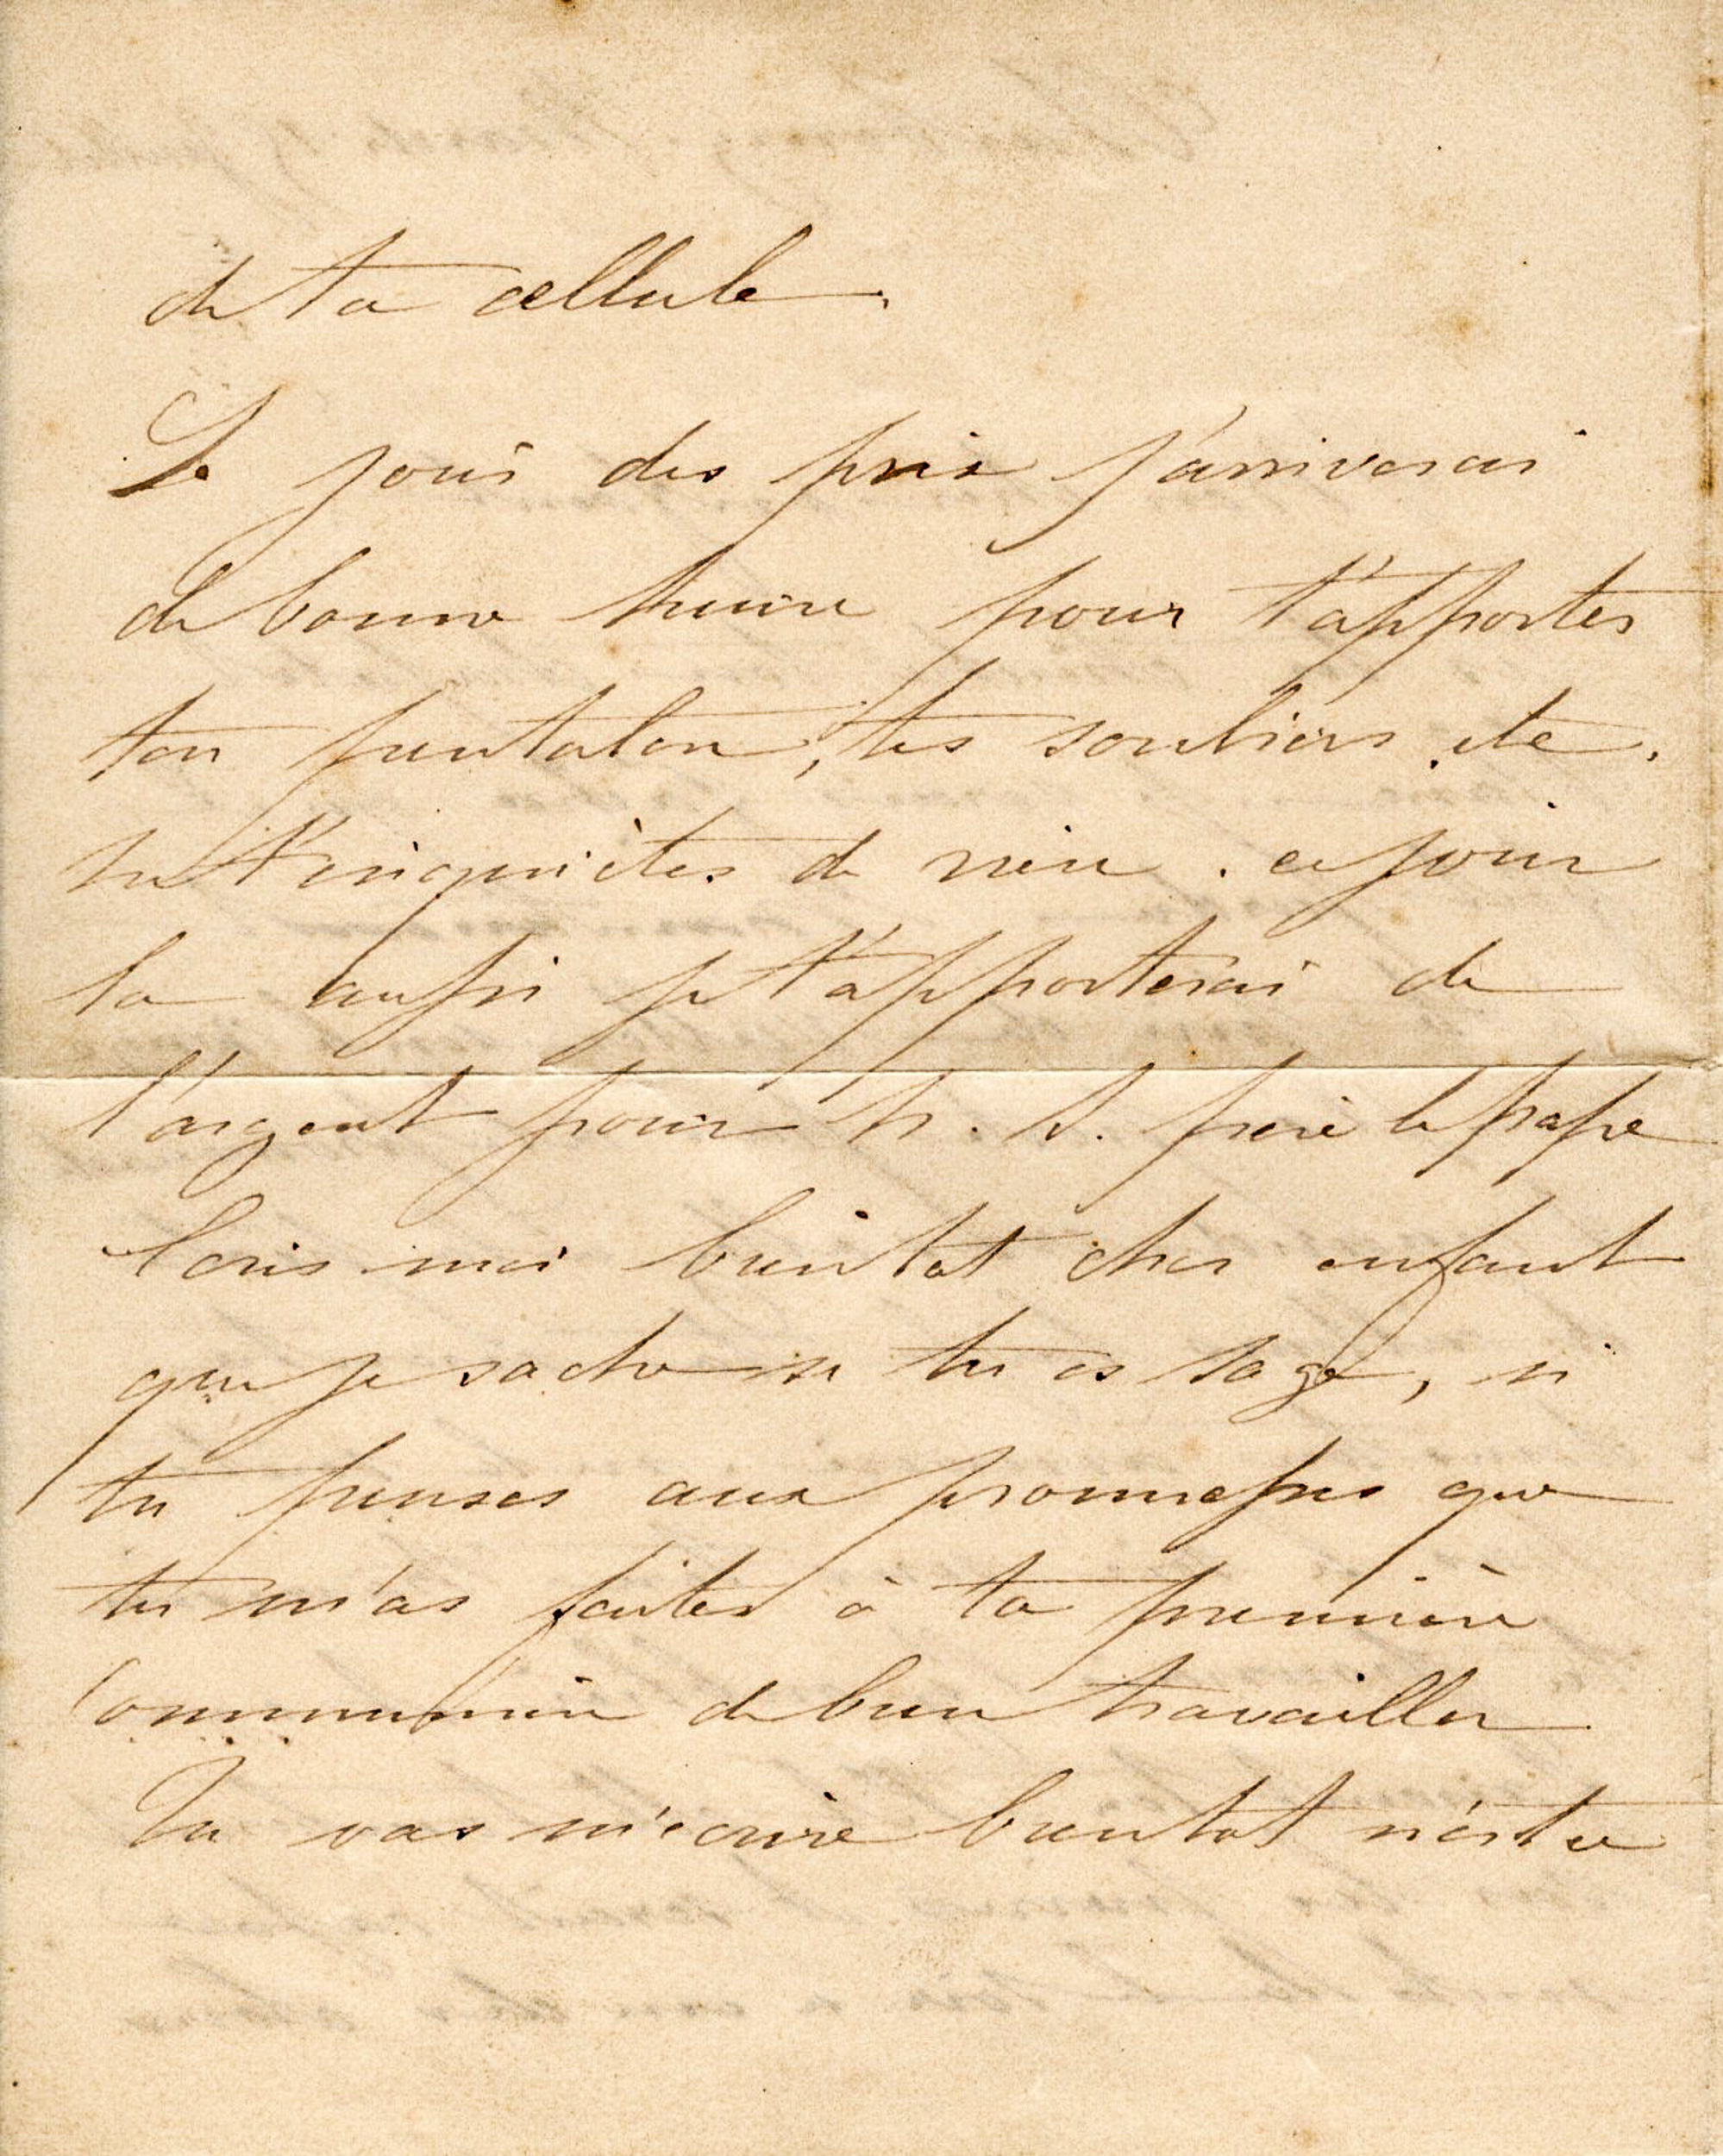 de ta cellule.
Le jour des prix j'arriverai
de bonne heure pour t'apporter
ton pantalon, tes souliers etc.
ne t'inquiètes de rien. ce jour
la aussi je t'apporterai de
l'argent pour N. S. père le pape
Ecris moi bientot cher enfant
que je sache si tu es sage, si
tu penses aux promesses que
tu m'as faites à ta première
Communion de bien travailler
Tu vas m'écrire bientot n'est ce